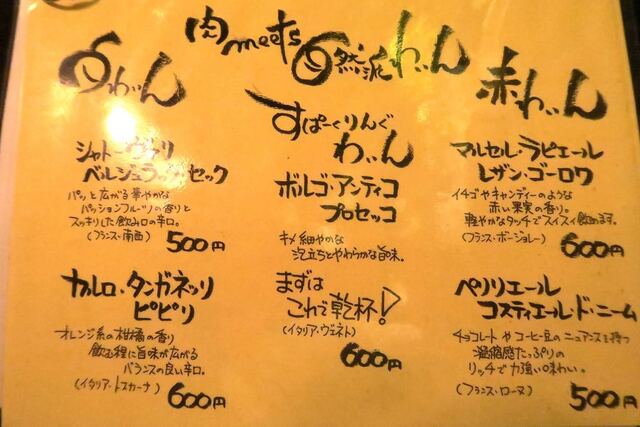 肉meets自然派わいん
白わいん
シャトー・ヴァリ
ベルジュラック・セック
パッと広がる華やかな
パッションフルーツの香りと
スッキリした飲み口の辛口。
(フランス・南西) 500円
カルロ・タンガネッリ
ピピリ
オレンジ系の柑橘の香り
飲む程に旨味が広がる
バランスの良い辛口。
(イタリア・トスカーナ) 600円
すぱーくりんぐ
わいん
ボルゴ・アンティコ
プロセッコ
キメ細やかな
泡立ちとやわらかな旨味。
まずは
これで乾杯!
(イタリア・ヴェネト)
600円
赤わいん
マルセル・ラピエール
レザン・ゴーロワ
イチゴやキャンディーのような
赤い果実の香り。
軽やかなタッチでスイスイ飲めます。
(フランス・ボージョレー) 600円
ペリリエール
コスティエール・ド・ニーム
チョコレートやコーヒー豆のニュアンスを持つ
凝縮感たっぷりの
リッチで力強い味わい。
(フランス・ローヌ) 500円